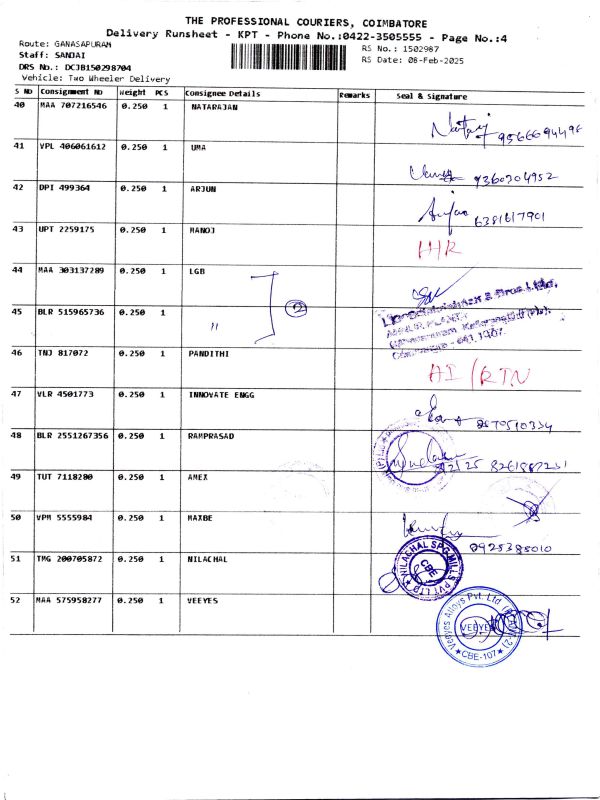 THE PROFESSIONAL COURIERS, COIMBATORE
Delivery Runsheet - KPT - Phone No.:0422-3505555 - Page No.:4
Route: GANASAPURAM
Staff: SANJAI
DRS No.: DCJB150298704
Vehicle: Two Wheeler Delivery
RS No.: 1502987
RS Date: 08-Feb-2025
S NO Consignment NO Weight PCS Consignee Details Remarks Seal & Signature
40 MAA 707216546 0.250 1 NATARAJAN 9566694496
41 VPL 406061612 0.250 1 UMA 9360304952
42 DPI 499364 0.250 1 ARJUN 6381617901
43 UPT 2259175 0.250 1 MANOJ
44 MAA 303137289 0.250 1 LGB
45 BLR 515965736 0.250 1 " 2
46 TNJ 817072 0.250 1 PANDITHI AI/RTN
47 VLR 4501773 0.250 1 INNOVATE ENGG
48 BLR 2551267356 0.250 1 RAMPRASAD
49 TUT 7118280 0.250 1 AMEX
50 VPM 5555984 0.250 1 MAXBE 0925385010
51 TMG 200705872 0.250 1 NILACHAL NILACHAL SPG.MILLS PVT LTD CBE
52 MAA 575958277 0.250 1 VEEYES Veeyes Alloys Pvt. Ltd CBE-107